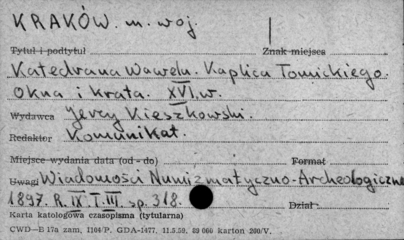 KRAKÓW. m. woj.
Tytuł i podtytuł Znak miejsca
Katedra na Wawelu. Kaplica Tomickiego.
Okna i krata. XVI. w.
Wydawca Jerzy Kieszkowski.
Redaktor Komunikat.
Miejsce wydania data (od - do) Format
Uwagi Wiadomości Numizmatyczno-Archeologiczne
1897. R. IX. T. III. sp. 318. Dział
Karta katologowa czasopisma (tytularna)
CWD—E 17a zam, 1104/P. GDA-1477. 11.5.59. 69 000 karton 200/V.